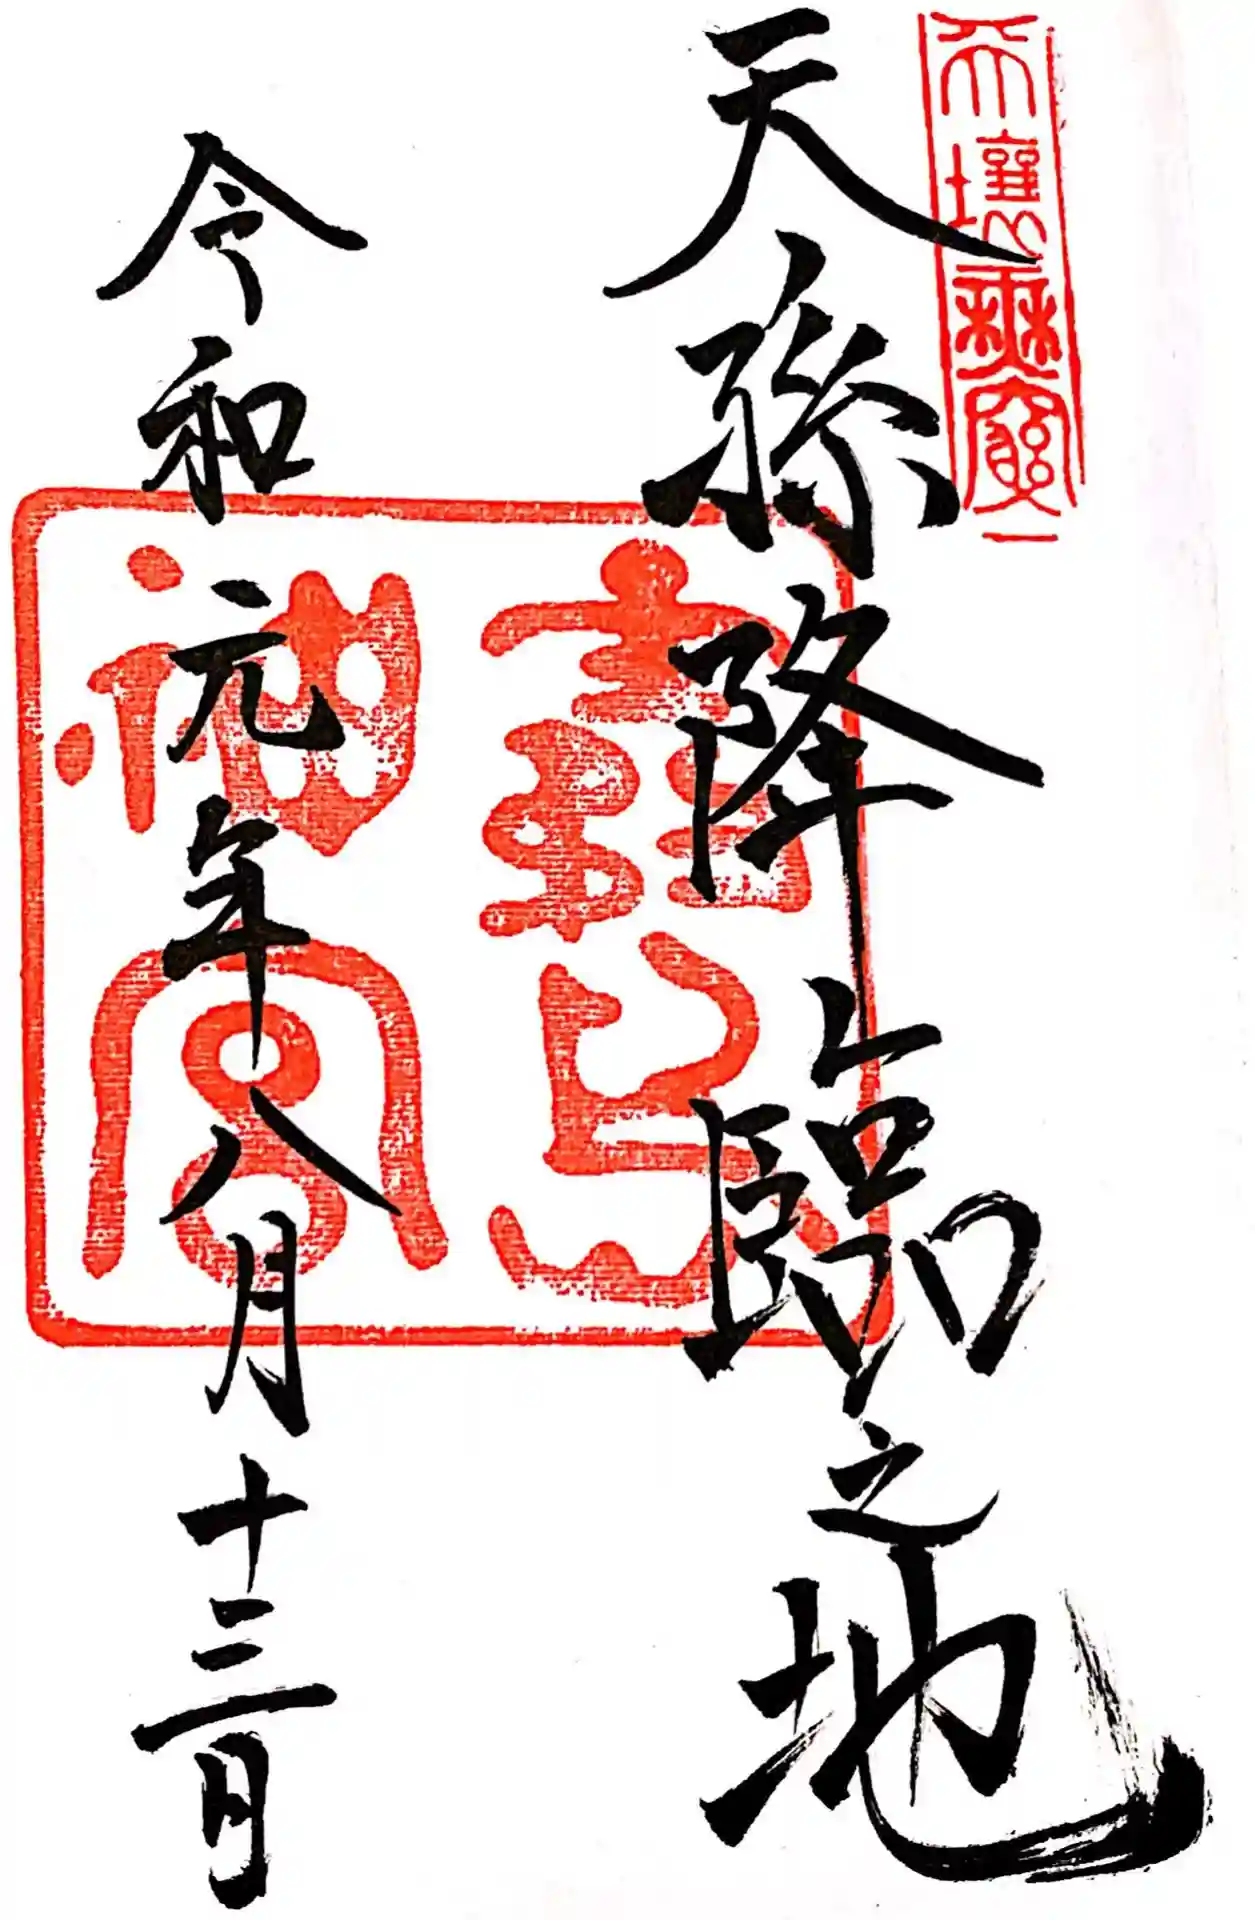 天壤無窮
天孫降臨之地
霧島
神宮
令和元年八月十三日